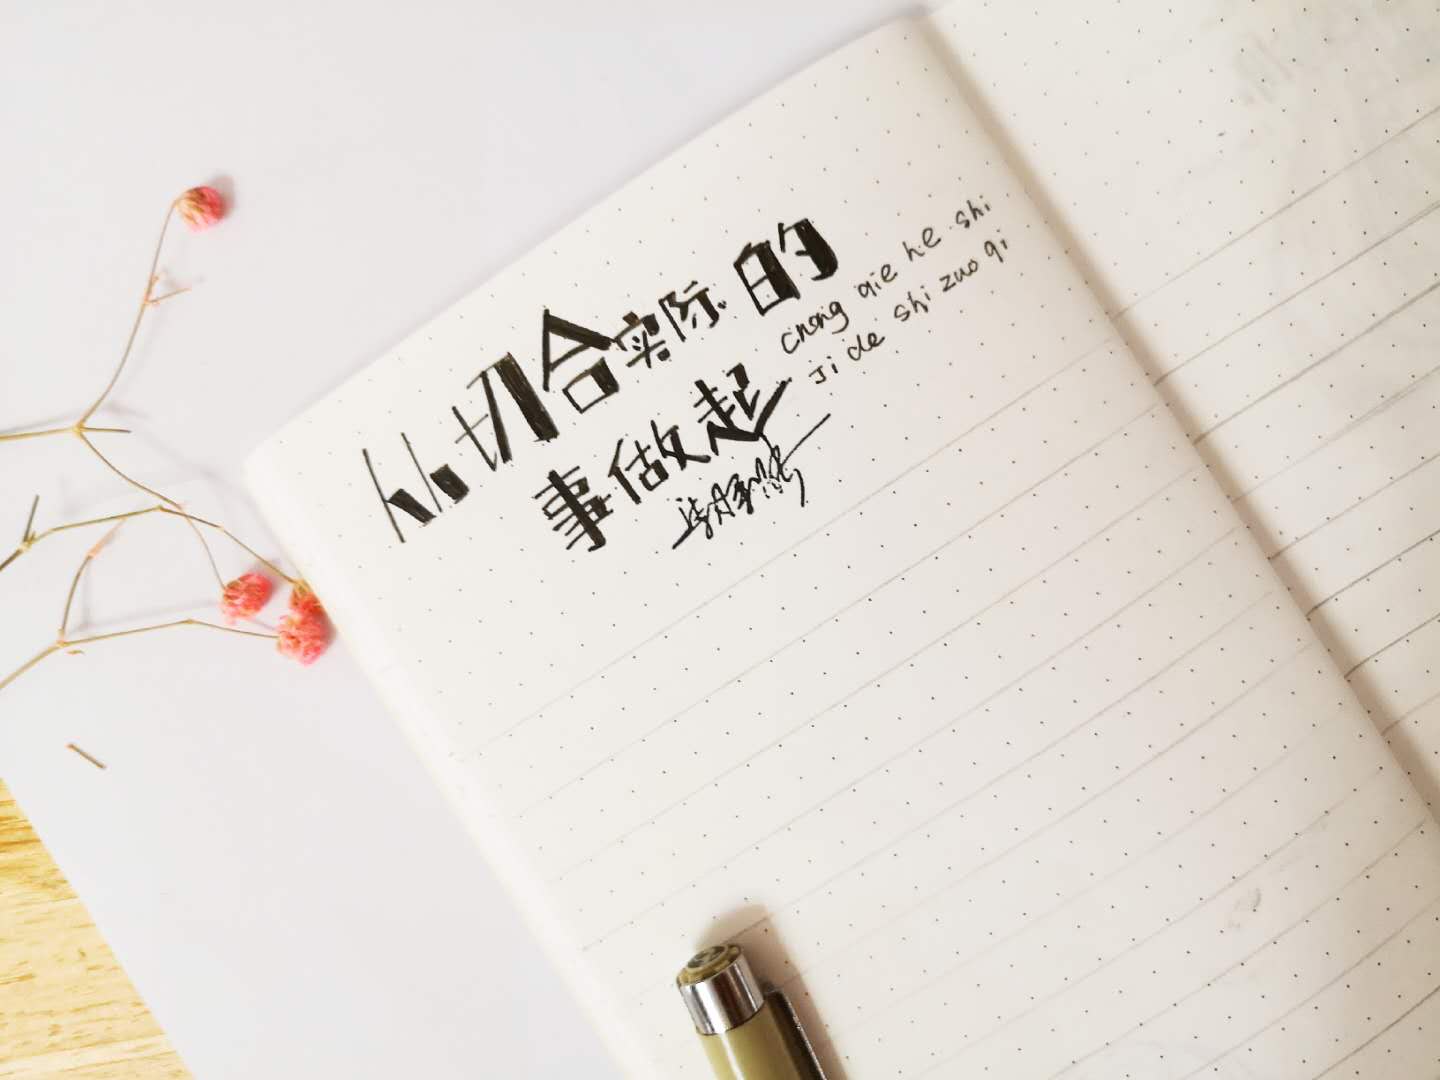 从切合实际的
事做起
cnong qie he shi
ji de shi zuo qi